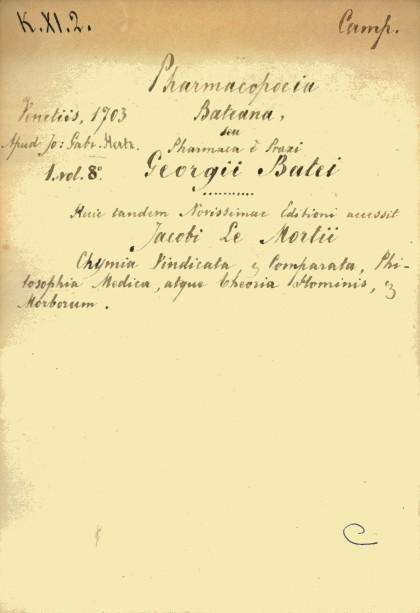 K. XI. 2.
Camp.
Pharmacopoeia
Venetiis, 1703
Bateana,
seu
Apud Jo: Gabr. Hertz.
Pharmaca ē Praxi
1. vol. 8°.
Georgii Batei
Huic tandem Novissimae Editioni accessit
Jacobi Le Mortii
Chymia Vindicata, & Comparata, Phi-
losophia Medica, atque Theoria Hominis, &
Morborum.
C